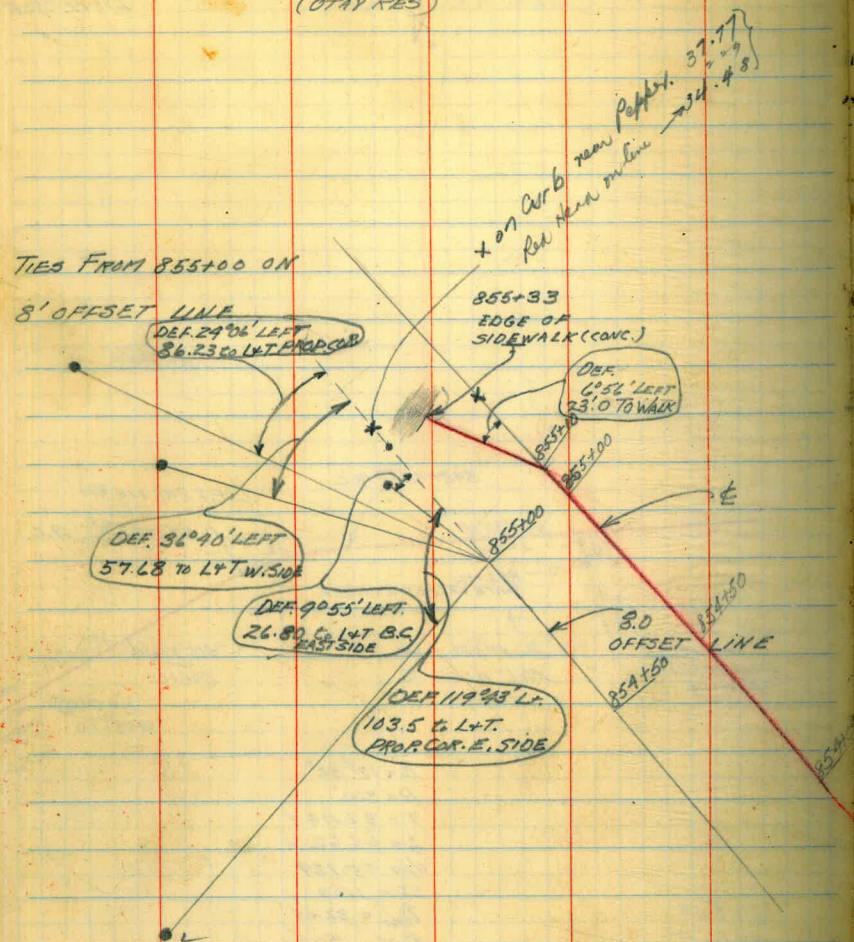 (OTAY RES)
X on Curb near Pepper. 37.77
Red Head on line → 34.48
TIES FROM 855+00 ON
8' OFFSET LINE
DEF. 29°06' LEFT
86.23 to L&T PROP. COR
855+33
EDGE OF
SIDEWALK (CONC.)
DEF.
6°56' LEFT
23.0 TO WALK
855+10
855+00
℄
DEF. 36°40' LEFT
57.68 TO L&T W. SIDE
855+00
DEF. 9°55' LEFT.
26.80 to L&T B.C.
EAST SIDE
854+50
8.0
OFFSET LINE
854+50
DEF. 119°43' Lt.
103.5 to L&T.
PROP. COR. E. SIDE